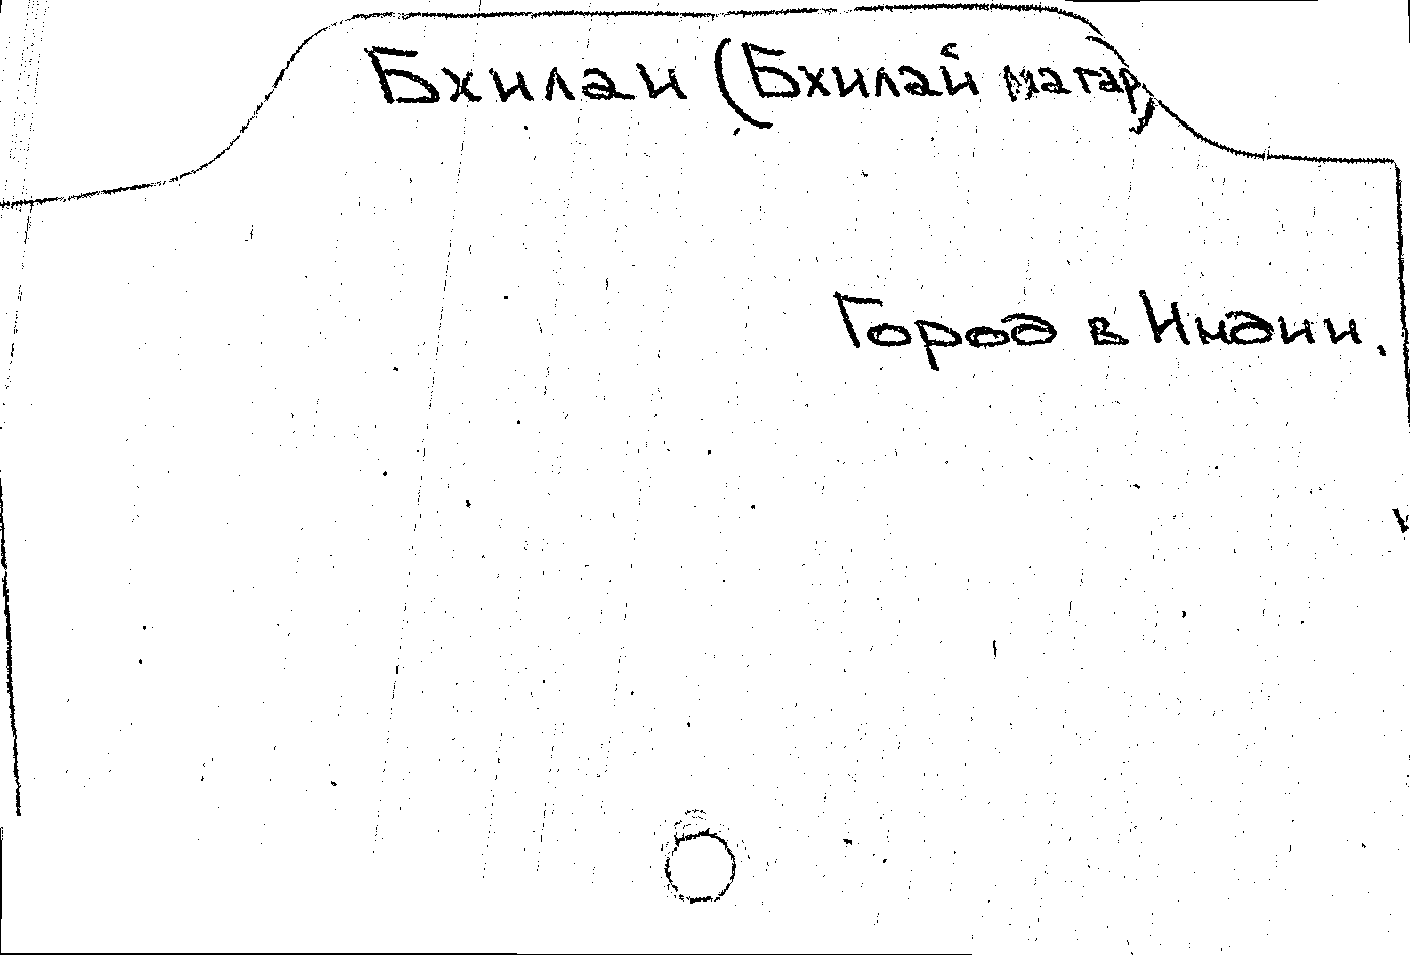 Бхилаи (Бхилай нагар)
Город в Индии.